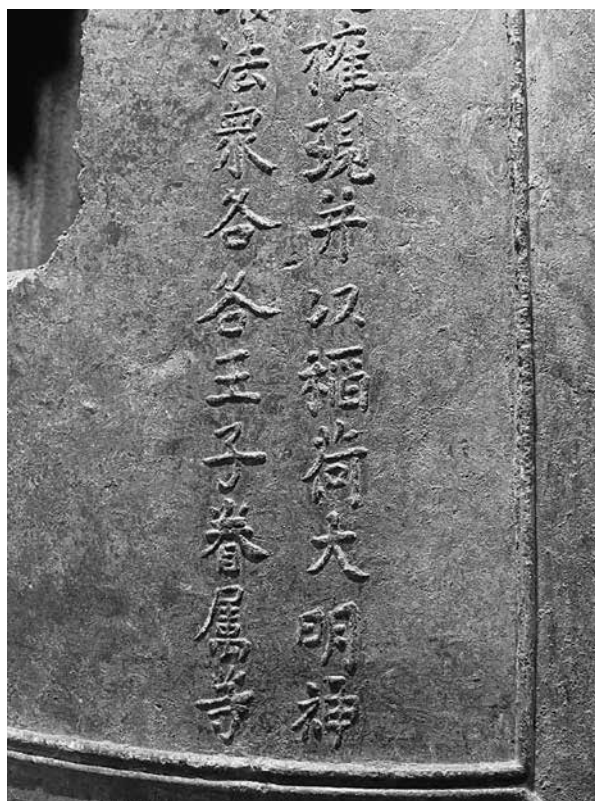 権現并以稲荷大明神
法衆各各王子眷属等